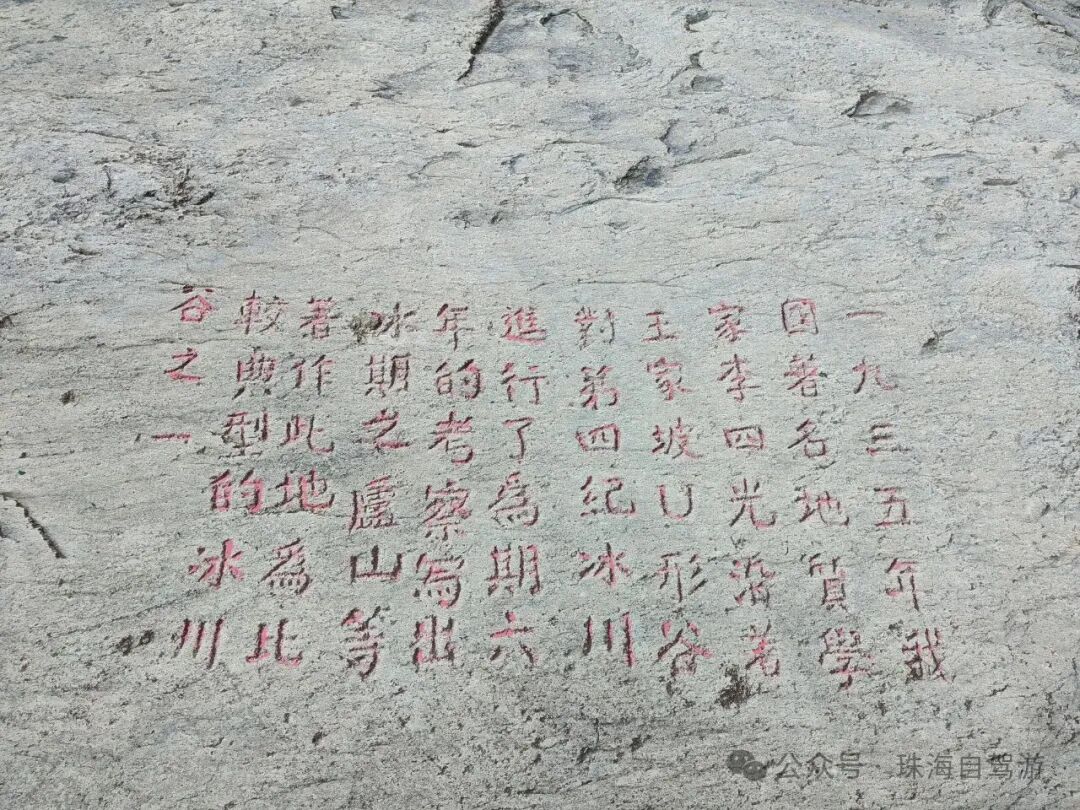 一九三五年我
國著名地質學
家李四光沿着
王家坡U形谷
對第四紀冰川
進行了為期六
年的考察寫出
冰期之廬山等
著作此地為比
較典型的冰川
谷之一
公众号·珠海自驾游